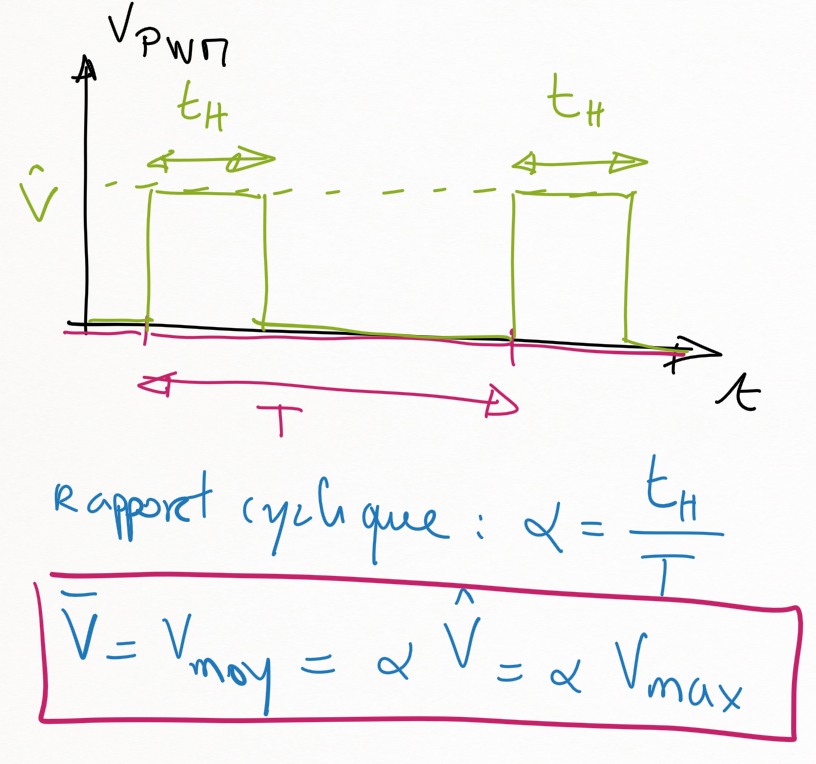 V_PWM
t_H t_H
V̂
t
T
Rapport cyclique : α = t_H / T
V̄ = V_moy = α V̂ = α V_max